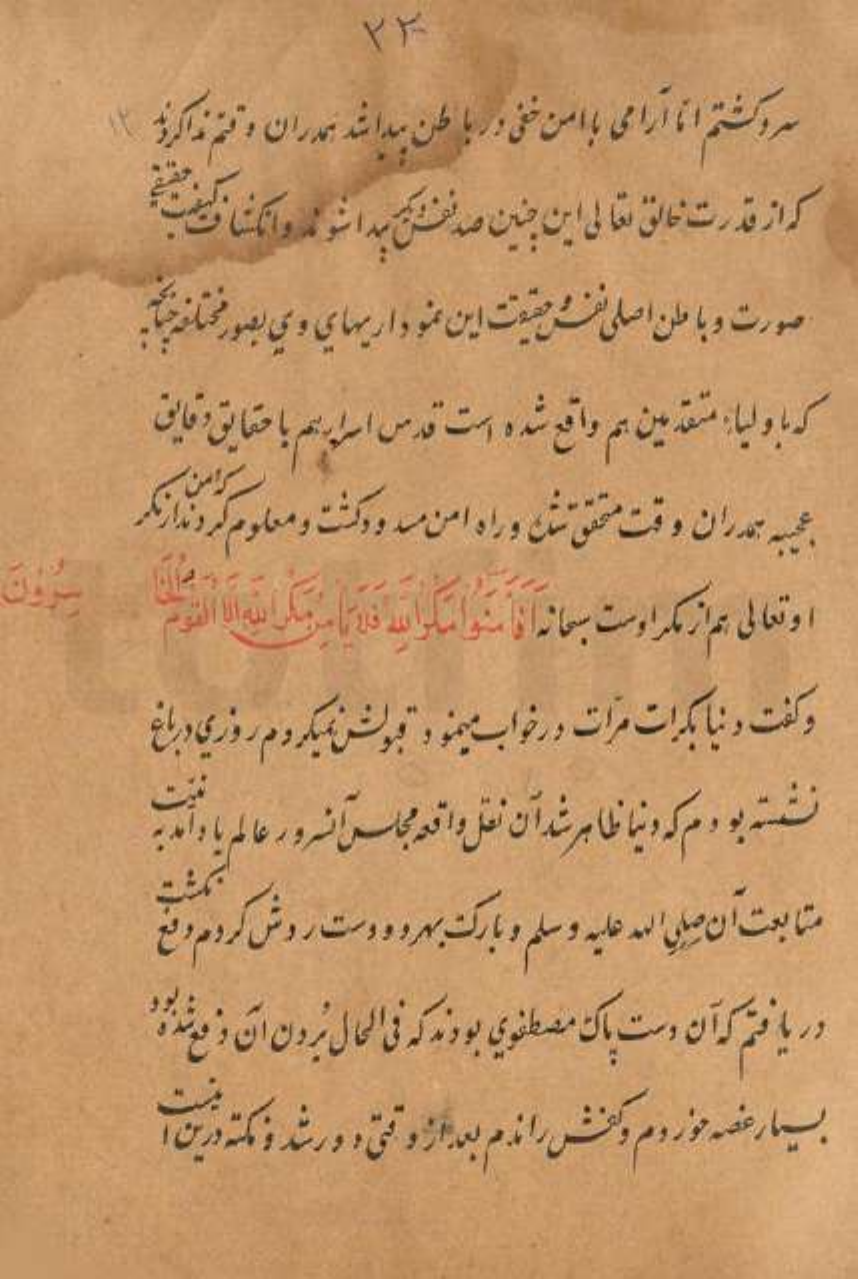 ۲۲
سر و کشتم اما آرامی با امن خفی در باطن پیدا شد همدران وقتم ندا کردند ۱۲
که از قدرت خالق تعالی این چنین صد نفس دیگر پیدا شوند و انکشاف کیفیت حقیقی
صورت و باطن اصلی نفس و حقیقت این نموداریهای وی بصور مختلفه چنانچه
که با ولیاء متقدمین هم واقع شده است قدس اسرارهم با حقایق دقایق
عجیبه همدران وقت متحقق شد و راه امن مسدود کشت و معلوم کردند که امن از مکر
او تعالی هم از مکر اوست سبحانه اَفَاَمِنُوا مَكْرَ اللهِ فَلَا يَأْمَنُ مَكْرَ اللهِ اِلَّا الْقَوْمُ الْخَا
سِرُونَ
و کفت دنیا بکرات مرّات در خواب مینمود قبولش نمیکردم روزی در باغ
نشسته بودم که دنیا ظاهر شد آن نقل واقعه مجلس آنسرور عالم یاد آمد به نیّت
متابعت آن صلی الله علیه وسلم و بارکت بهر دو دست ردش کردم دفع نکشت
دریافتم که آن دست پاک مصطفوی بودند که فی الحال بُردن آن دفع شده بود
بسیار غصه خوردم و کفش راندم بعد از وقتی دور شد و نکته درین